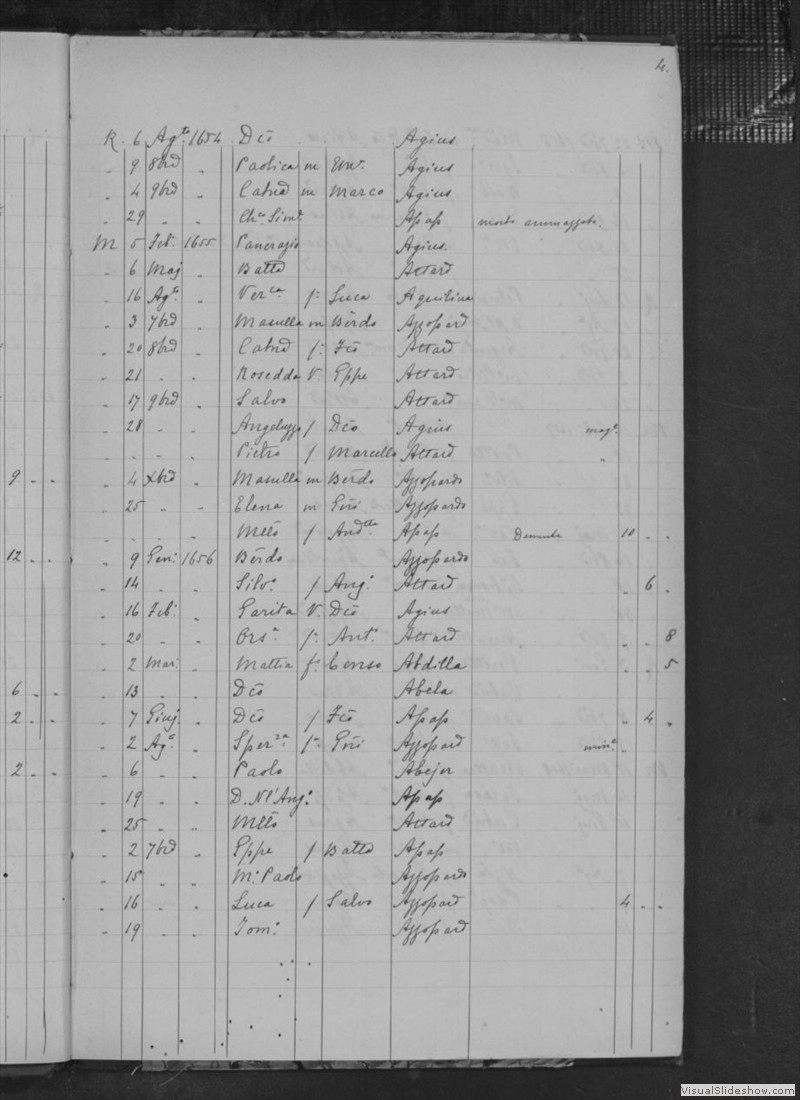 4.
R. 6 Agto. 1654 Dcō Agius
" 9 8brē " Paolica m Agius
" 4 9brē " Catnā m Marco Agius
" 29 " " Chco Simne Apap morto ammazzato
M 5 Feb. 1655 Pancrazio Agius
" 6 Maj " Batta Attard
" 16 Agto. " Verca f: Luca Aquilina
" 3 7brē " Masulla m Bērdo Azzopard
" 20 8brē " Catnā f: Fcō Attard
" 21 " " Rosedda V. Gppe Attard
" 17 9brē " Salvo Attard
" 28 " " Angeluzzo f Dcō Agius
" " " " Pietro f Marcello Attard "
9 " " " 4 Xbrē " Masulla m Bērdo Azzopardo
" 25 " " Elena m Gnī Azzopardo
" " " " Mttō f Apap 10 " "
12 " " " 9 Gen. 1656 Bērdo Azzopardo
" 14 " " Silvo f Ango Attard " 6 "
" 16 Feb. " Garita V. Dcō Agius
" 20 " " Orsa f: Anto. Attard " " 8
" 2 Mar. " Mattia f. Censo Abdilla " " 5
6 " " " 13 " " Dcō Abela
2 " " " 7 Giuj " Dcō f Fcō Apap " 4 "
" 2 Ago " Sperza f: Gnī Azzopard
2 " " " 6 " " Paolo Abejer
" 19 " " D. Nl' Ango Apap
" 25 " " Mttō Attard
" 2 7brē " Gppe f Batta Apap
" 15 " " Mo Paolo Azzopardo
" 16 " " Luca f Salvo Azzopard 4 " "
" 19 " " Tomo Azzopard
VisualSlideshow.com